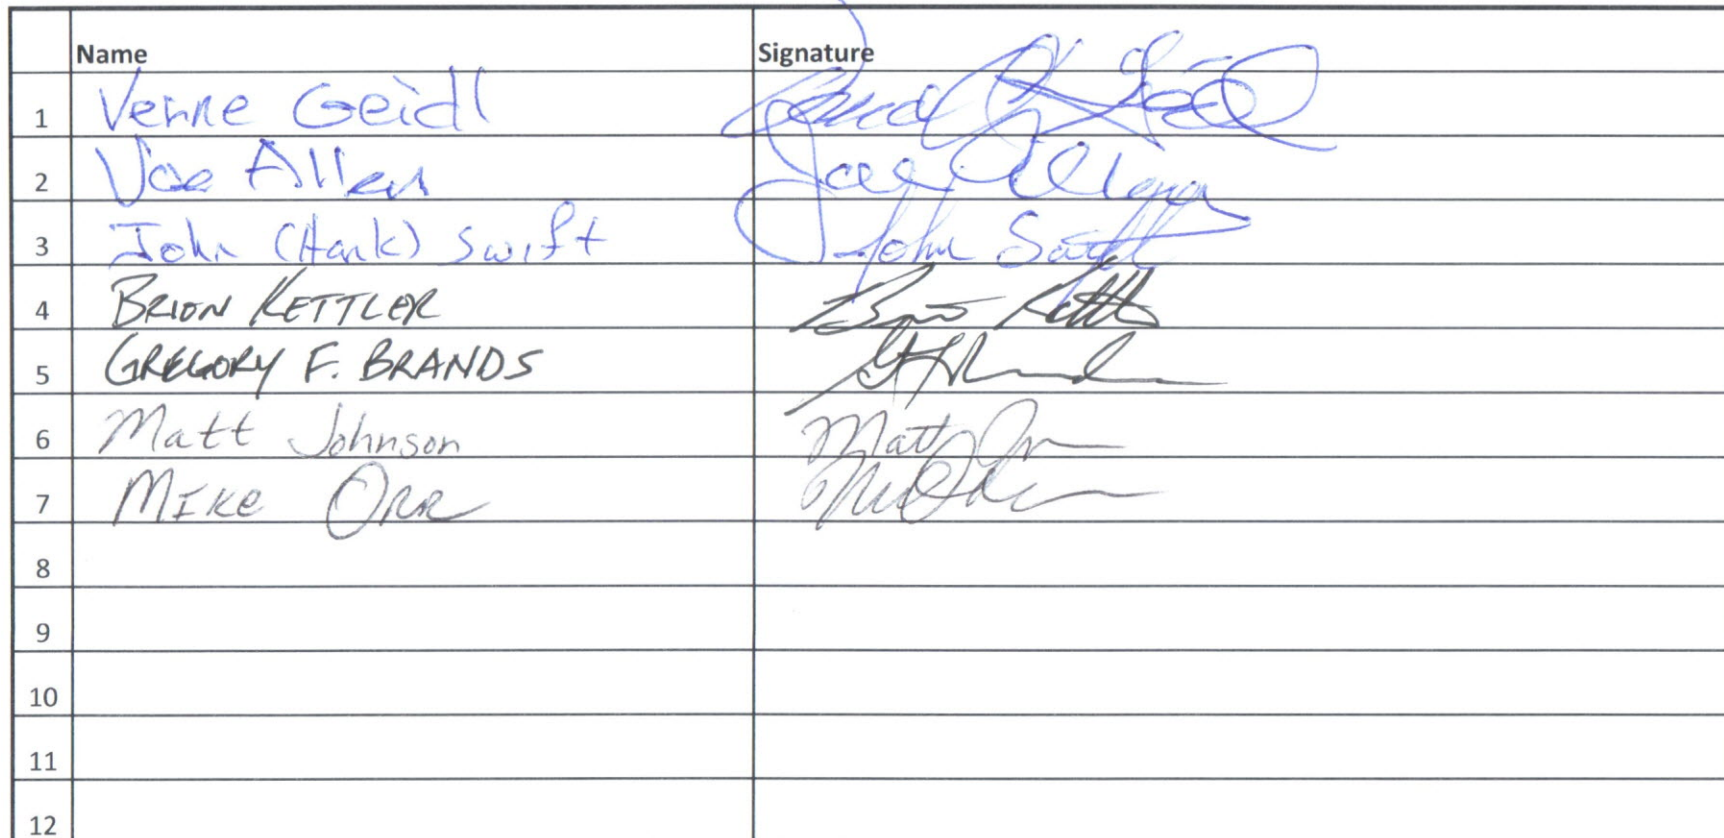 Name Signature
1 Verne Geidl
2 Joe Allen Joe Allen
3 John (Hank) Swift John Swift
4 BRION KETTLER
5 GREGORY F. BRANDS
6 Matt Johnson Matt
7 MIKE ORR
8
9
10
11
12